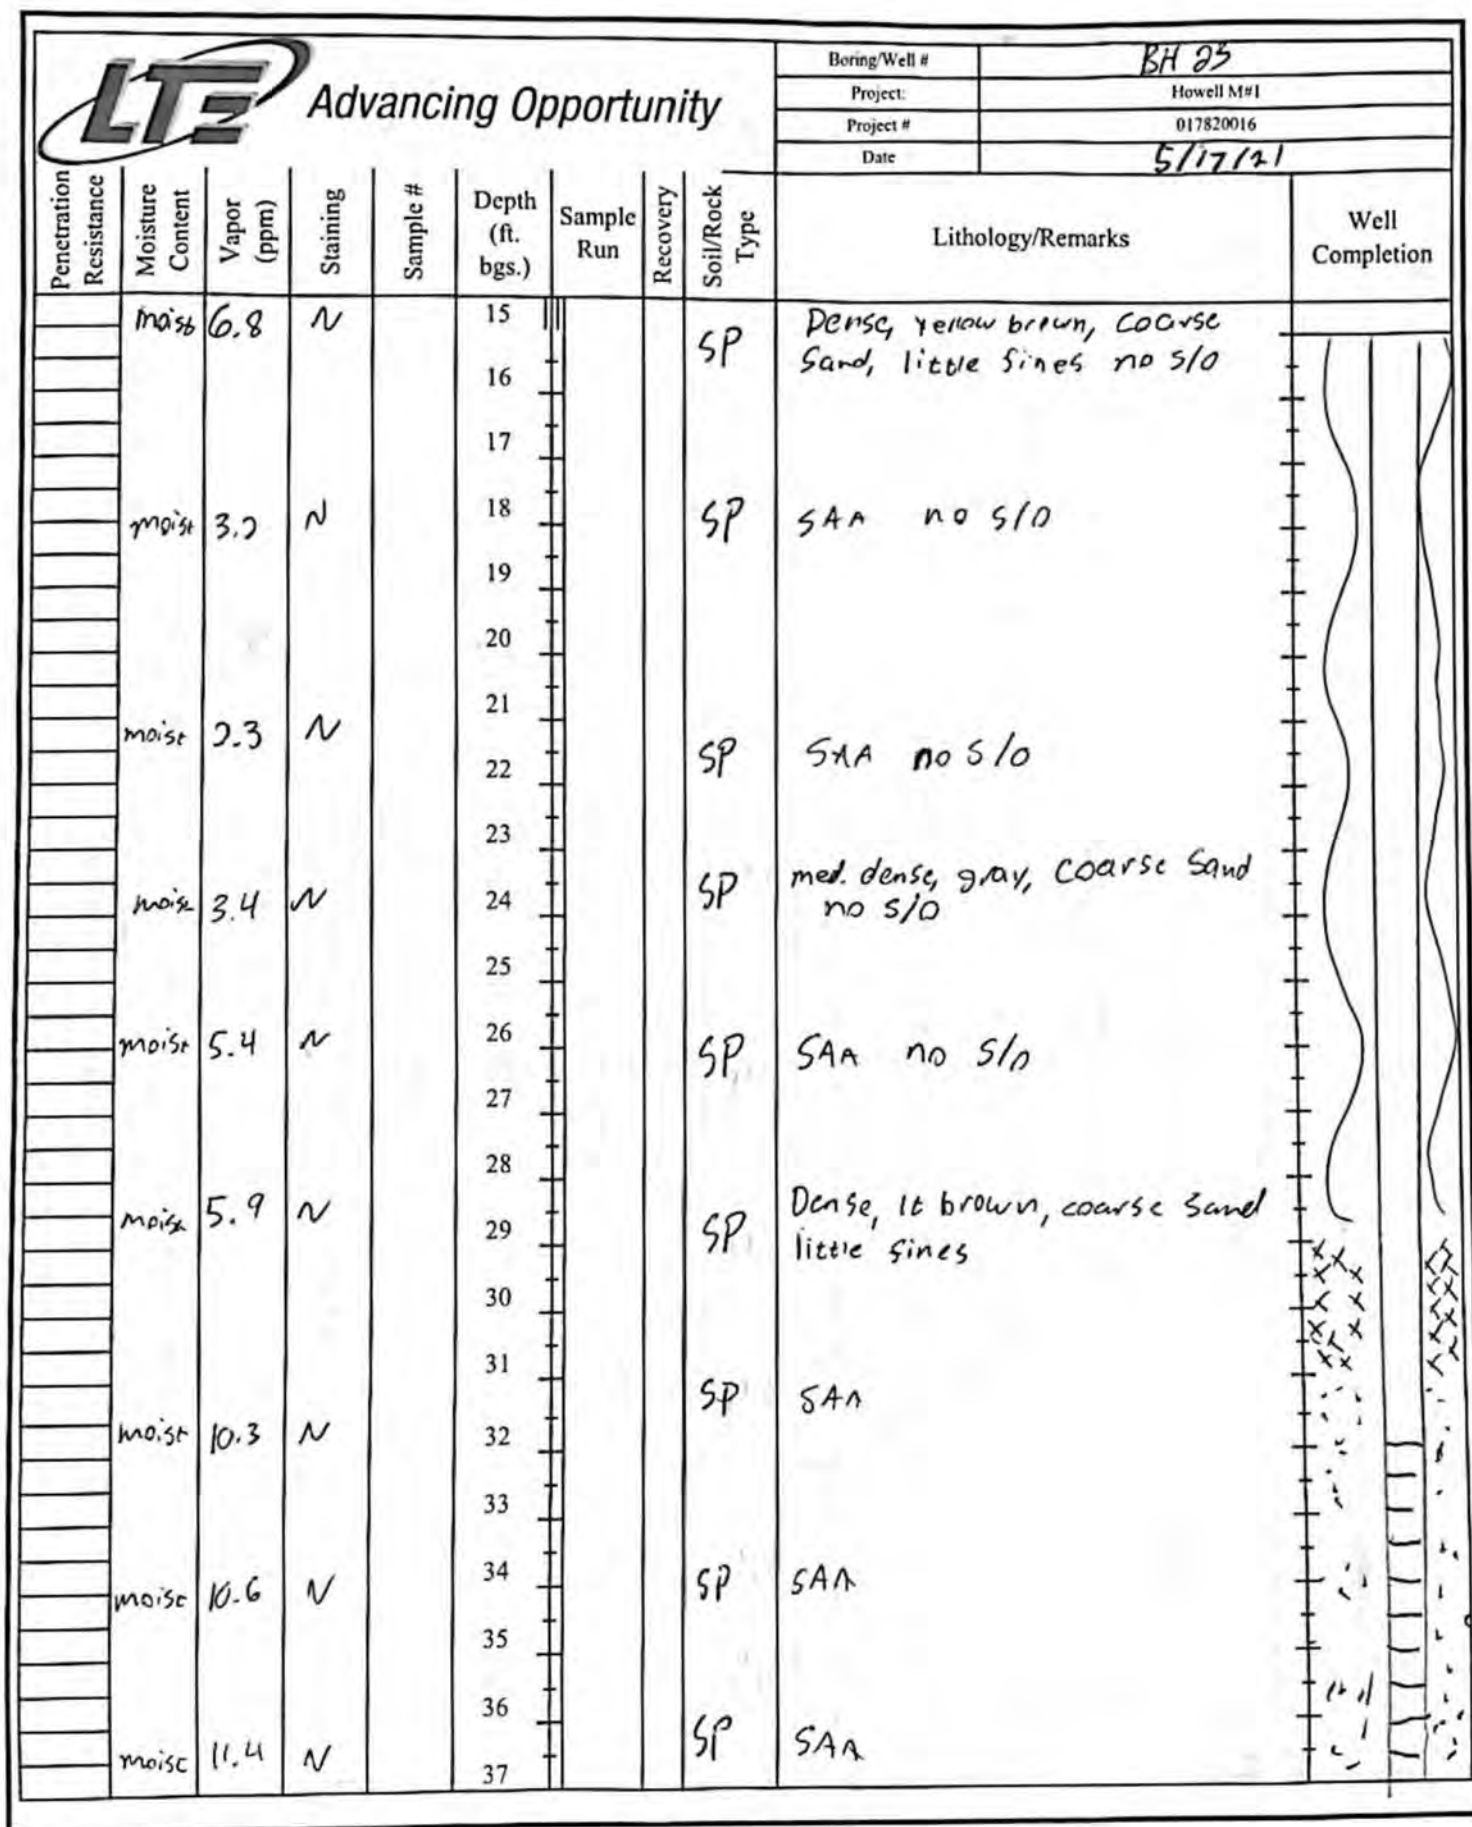 LTE Advancing Opportunity
Boring/Well # BH 23
Project: Howell M#1
Project # 017820016
Date 5/17/21
Penetration Resistance
Moisture Content
Vapor (ppm)
Staining
Sample #
Depth (ft. bgs.)
Sample Run
Recovery
Soil/Rock Type
Lithology/Remarks
Well Completion
moist 6.8 N 15 SP Dense, yellow brown, coarse
Sand, little fines no S/O
16
17
moist 3.2 N 18 SP SAA no S/O
19
20
21
moist 2.3 N SP SAA no S/O
22
23
moist 3.4 N 24 SP med. dense, gray, coarse Sand
no S/O
25
moist 5.4 N 26 SP SAA no S/O
27
28
moist 5.9 N 29 SP Dense, lt brown, coarse Sand
little fines
30
31
SP SAA
moist 10.3 N 32
33
moist 10.6 N 34 SP SAA
35
36
moist 11.4 N SP SAA
37